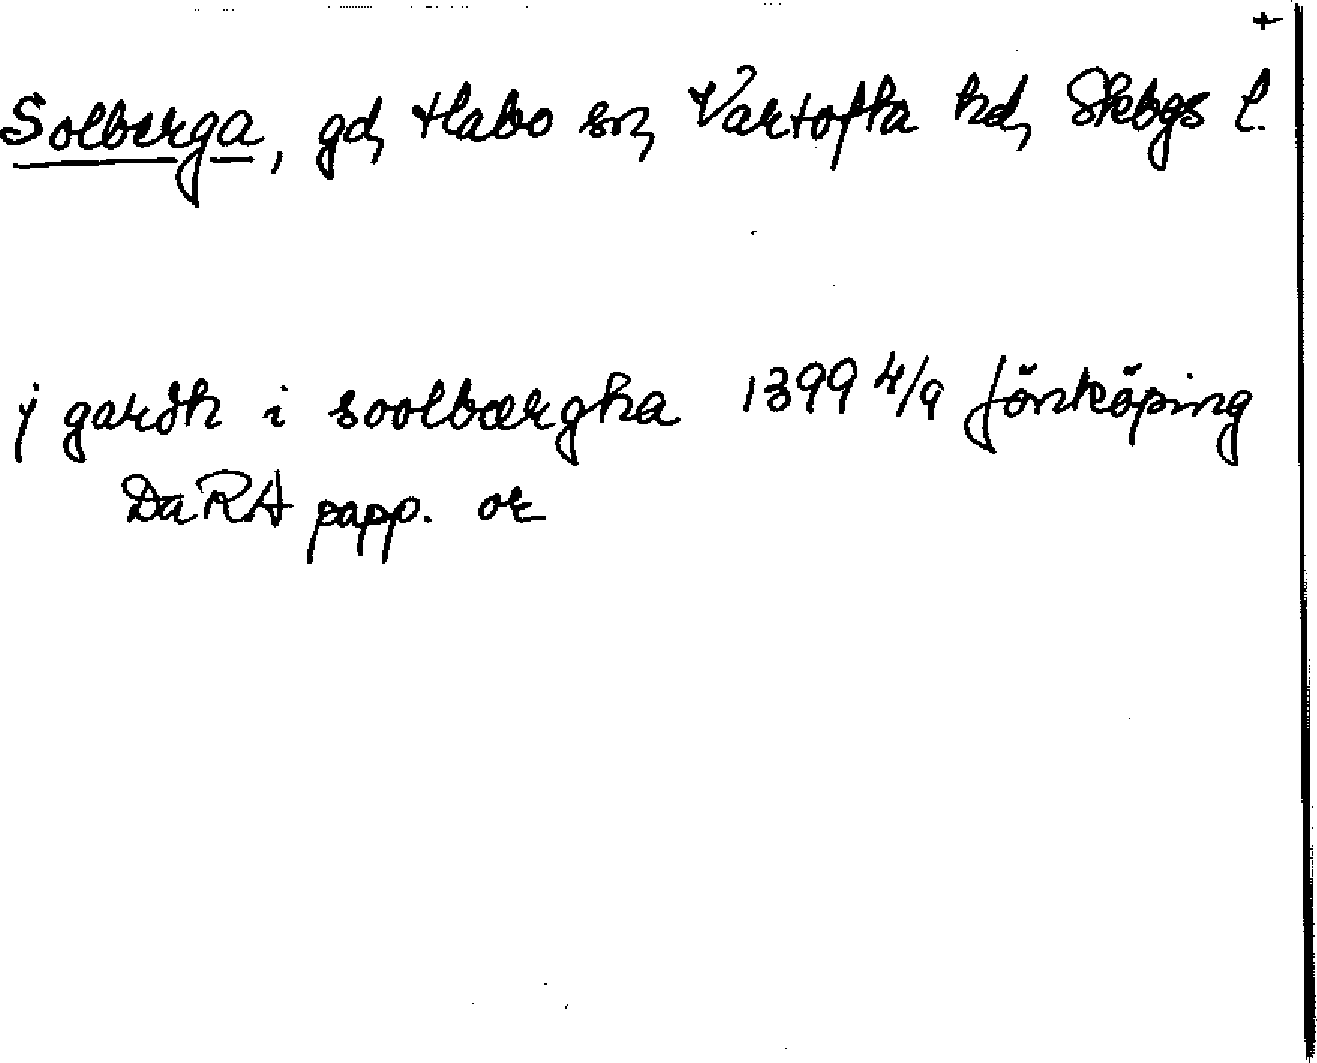 +
Solberga, gd, Habo sn, Vartofta hd, Skbgs l.
j gardh i soolbærgha 1399 4/9 Jönköping
DaRA papp. or